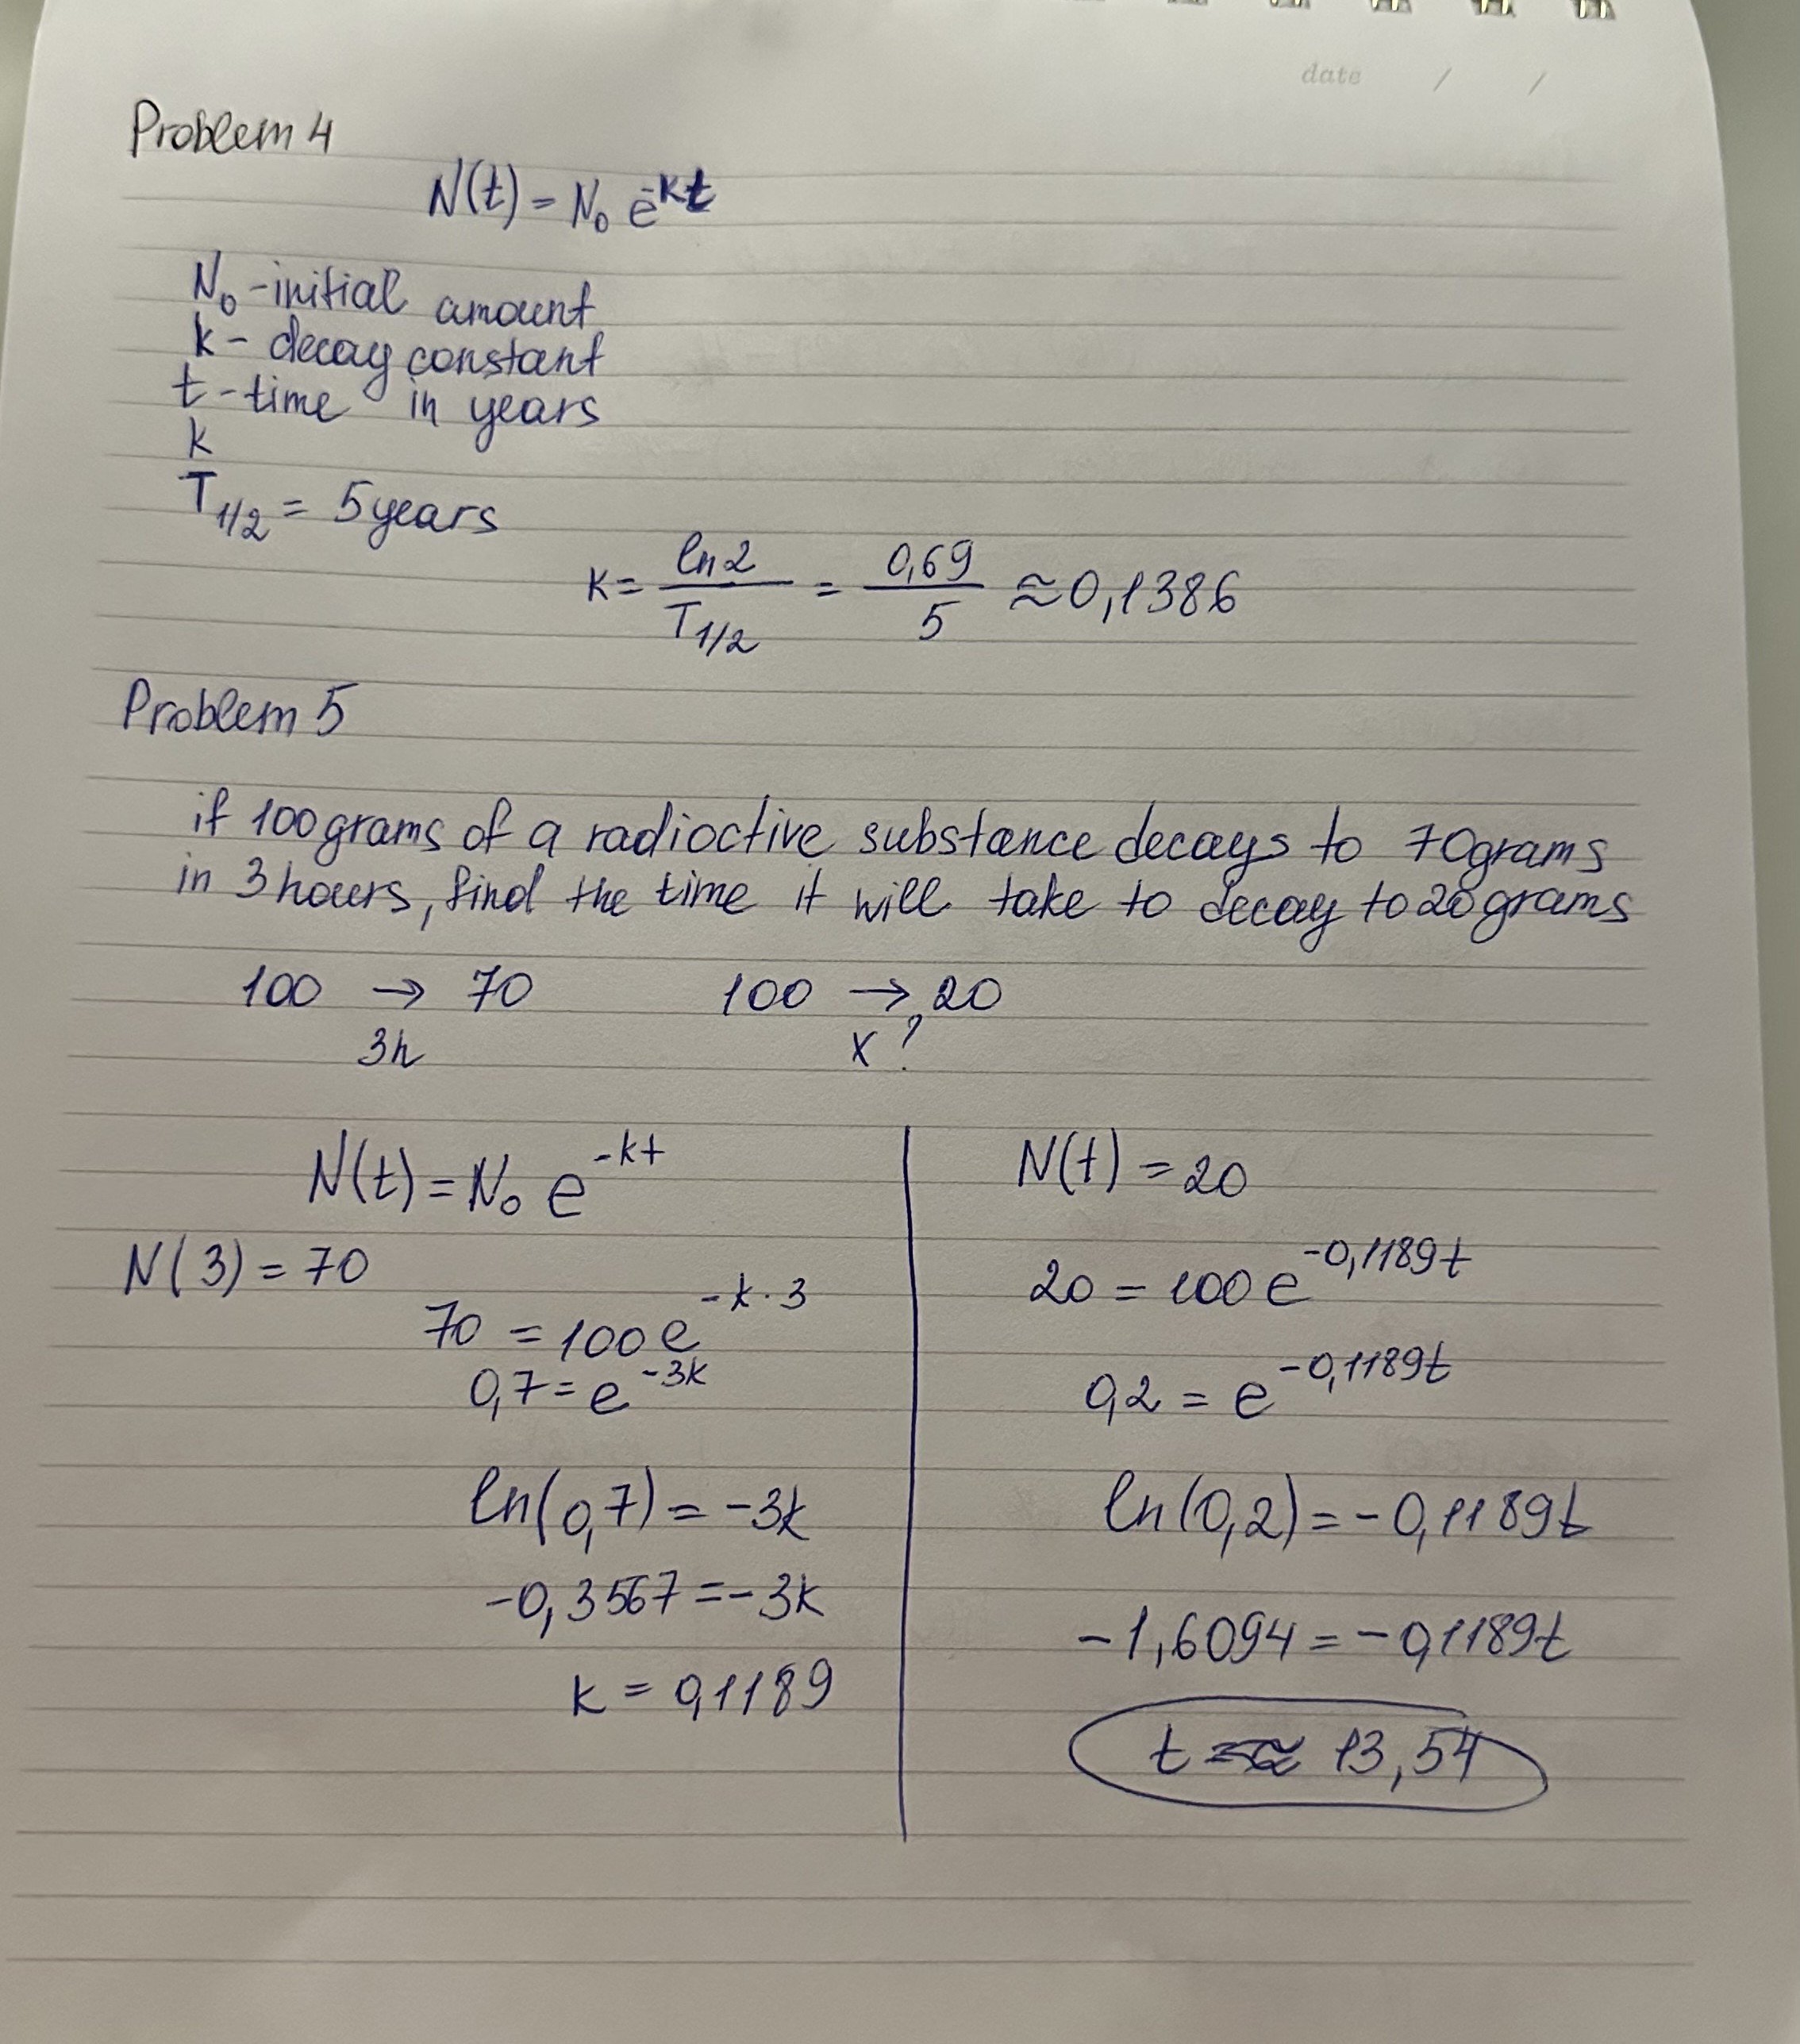 date / /
Problem 4
N(t) = N₀ e^-kt
N₀ - initial amount
k - decay constant
t - time in years
k
T1/2 = 5 years
k = ln2 / T1/2 = 0,69 / 5 ≈ 0,1386
Problem 5
if 100 grams of a radioctive substance decays to 70 grams
in 3 hours, find the time it will take to decay to 20 grams
100 → 70
3h
100 → 20
x ?
N(t) = N₀ e^-kt
N(3) = 70
70 = 100 e^-k·3
0,7 = e^-3k
ln(0,7) = -3k
-0,3567 = -3k
k = 0,1189
N(t) = 20
20 = 100 e^-0,1189t
0,2 = e^-0,1189t
ln(0,2) = -0,1189t
-1,6094 = -0,1189t
t ≈ 13,54